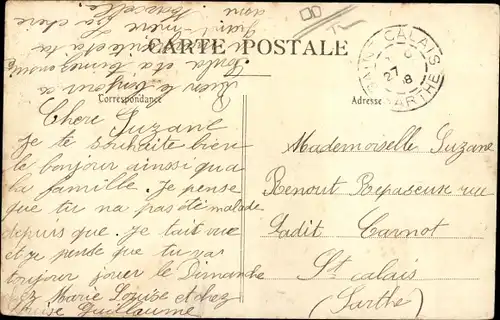 CARTE POSTALE
Correspondance
Adresse
SAINT CALAIS
27 8
SARTHE
Chere Suzane
Je te souhaite bien
le bonjour ainssi qua
ta famille. Je pense
que tu na pas été malade
depuis que. Je tait vue
et je pense que tu vas
toujour jouer le Dimanche
chez Marie Louise et chez
Guillaume
Mademoiselle Suzane
Renout Repaseuse rue
Sadit Carnot
St calais
(Sarthe)
Bien le bonjour a